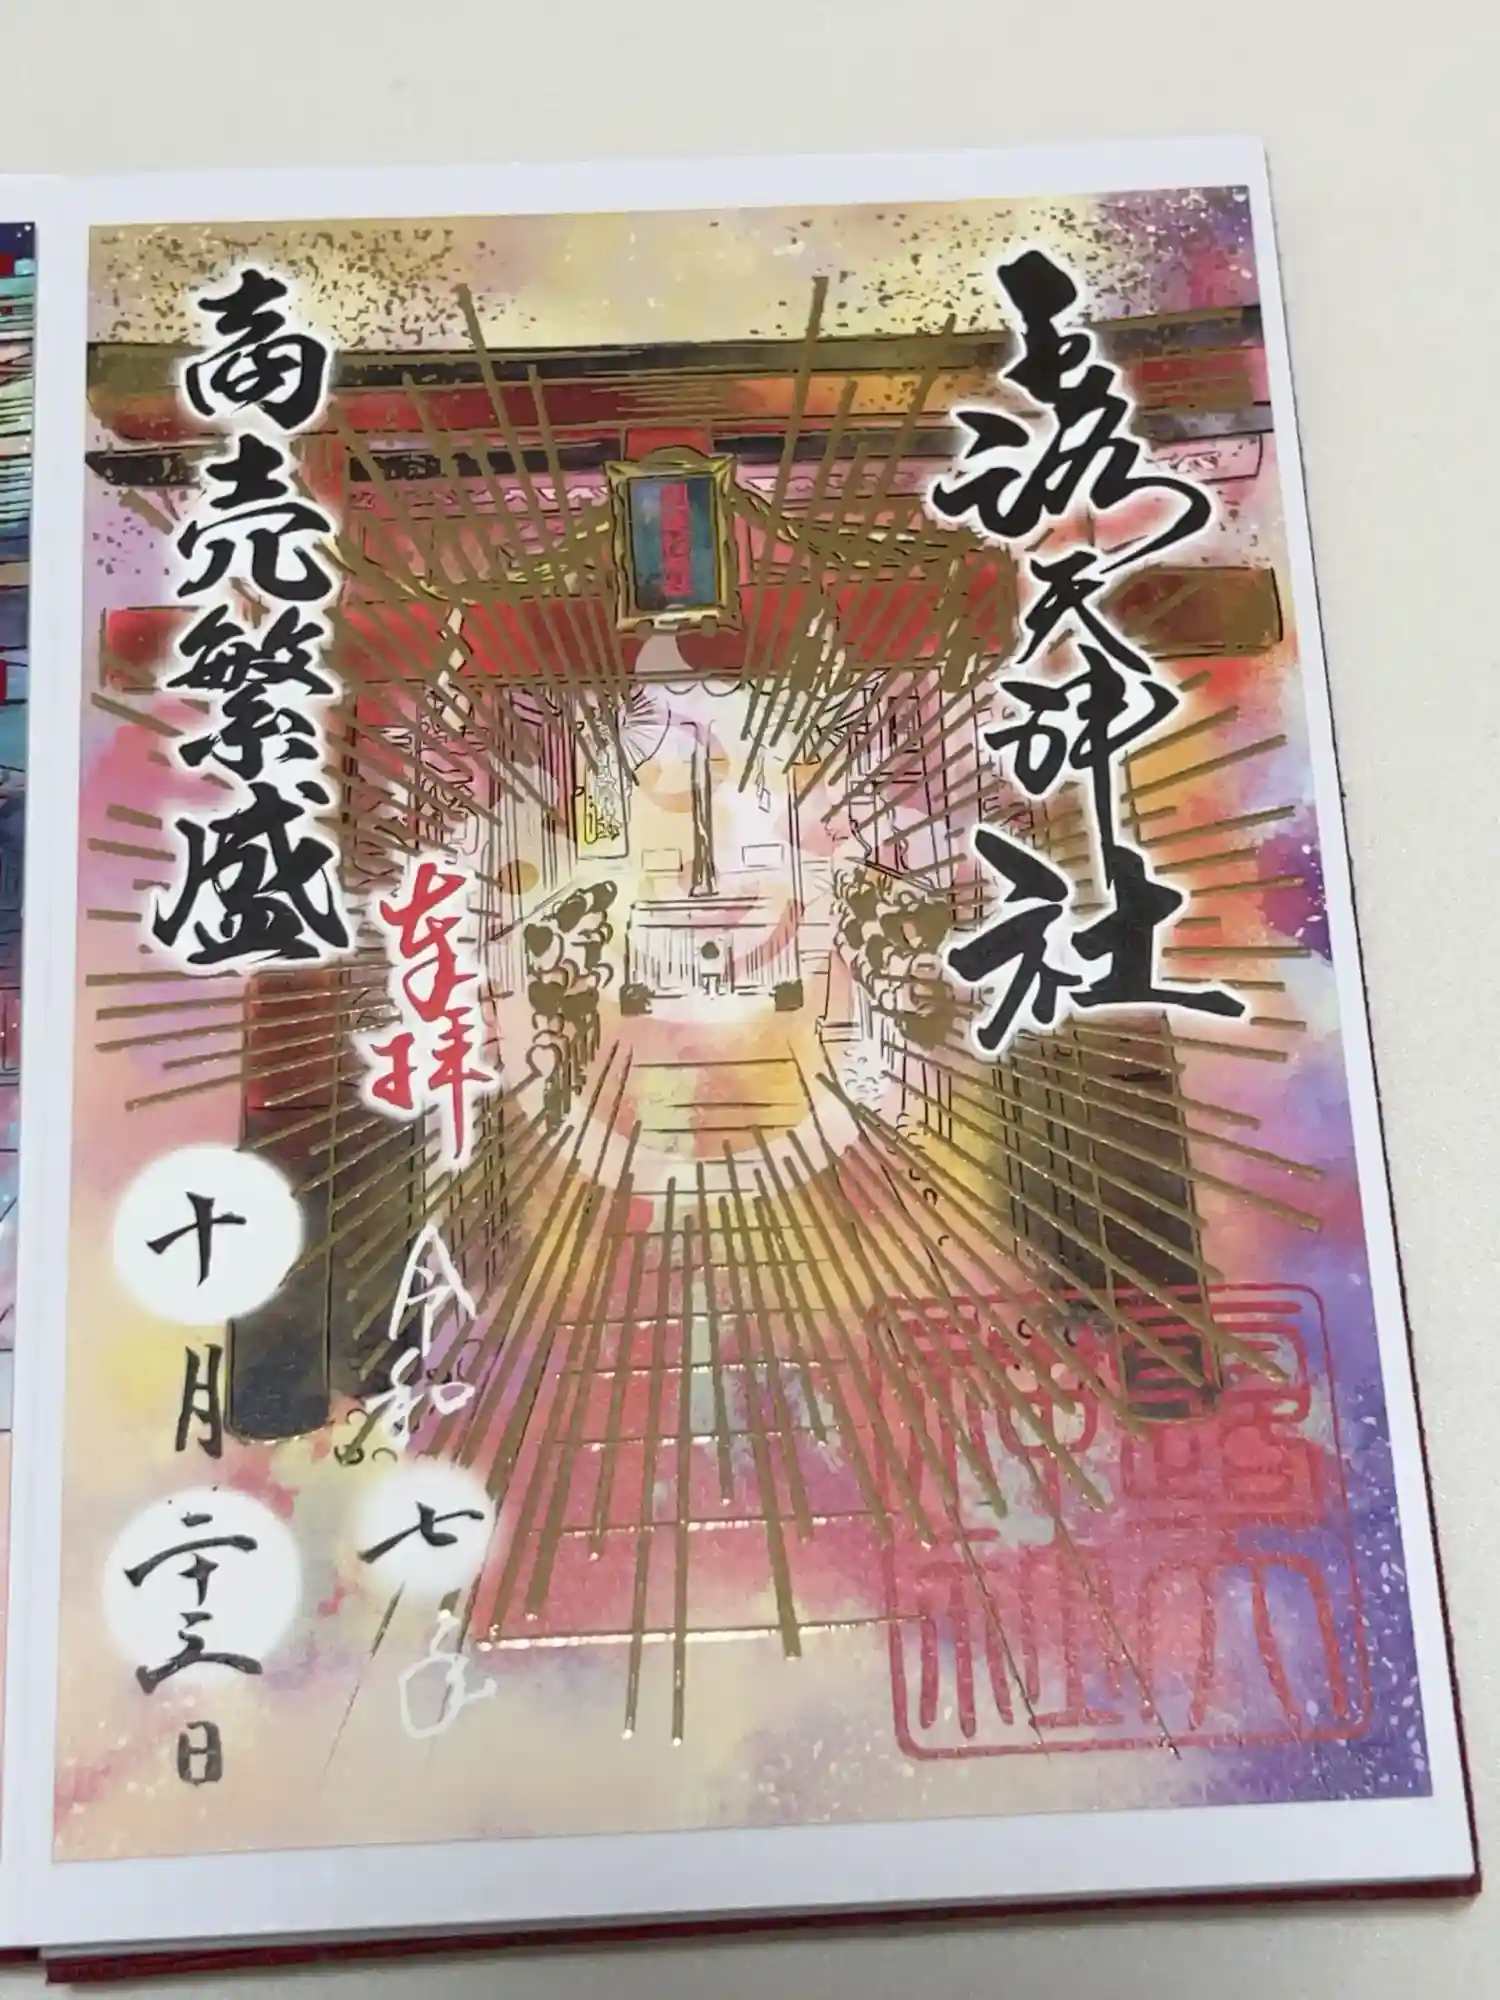 露天神社
奉拝
令和七年
商売繁盛
十月二十三日